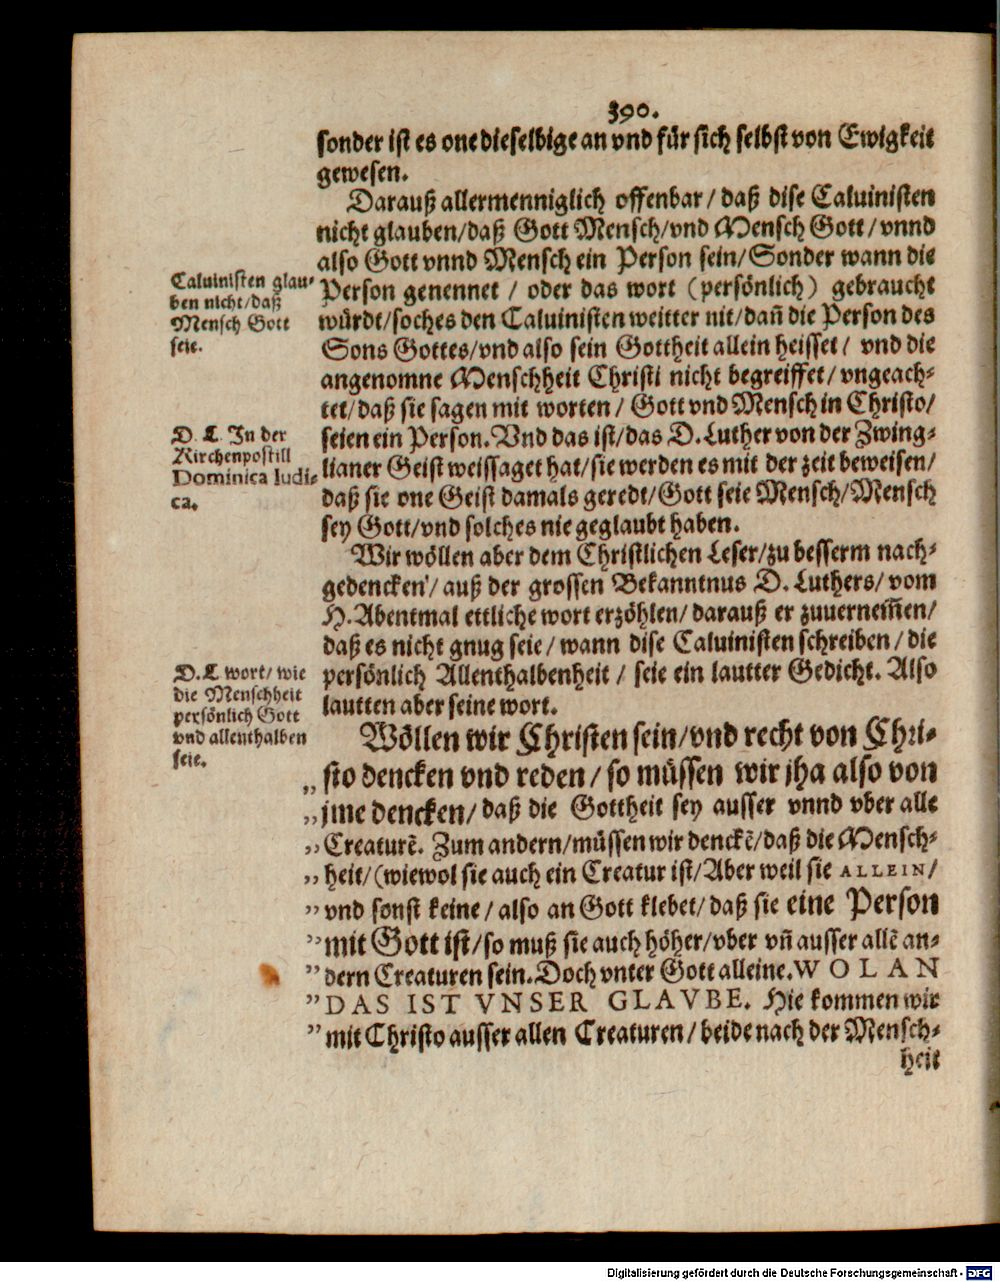 390.
sonder ist es one dieselbige an vnd für sich selbst von Ewigkeit
gewesen.
Darauß allermenniglich offenbar / daß dise Caluinisten
nicht glauben/daß Gott Mensch/vnd Mensch Gott / vnnd
also Gott vnnd Mensch ein Person sein/Sonder wann die
Person genennet / oder das wort (persönlich) gebraucht
würdt/soches den Caluinisten weitter nit/dañ die Person des
Sons Gottes/vnd also sein Gottheit allein heisset / vnd die
angenomne Menschheit Christi nicht begreiffet/ vngeach-
tet/daß sie sagen mit worten / Gott vnd Mensch in Christo/
seien ein Person. Vnd das ist/das D. Luther von der Zwing-
lianer Geist weissaget hat/sie werden es mit der zeit beweisen/
daß sie one Geist damals geredt/Gott seie Mensch/Mensch
sey Gott/vnd solches nie geglaubt haben.
Caluinisten glau-
ben nicht/daß
Mensch Gott
seie.
D. L. In der
Kirchenpostill
Dominica Iudi-
ca.
Wir wöllen aber dem Christlichen Leser/zu besserm nach-
gedencken / auß der grossen Bekanntnus D. Luthers/ vom
H. Abentmal ettliche wort erzöhlen/ darauß er zuuernem̄en/
daß es nicht gnug seie / wann dise Caluinisten schreiben / die
persönlich Allenthalbenheit / seie ein lautter Gedicht. Also
lautten aber seine wort.
D. L wort/ wie
die Menschheit
persönlich Gott
vnd allenthalben
seie.
Wöllen wir Christen sein/vnd recht von Chri-
„ sto dencken vnd reden / so müssen wir jha also von
„ jme dencken/ daß die Gottheit sey ausser vnnd vber alle
„ Creaturē. Zum andern/müssen wir denckē/daß die Mensch-
„ heit/(wiewol sie auch ein Creatur ist/Aber weil sie ALLEIN/
„ vnd sonst keine / also an Gott klebet/ daß sie eine Person
„ mit Gott ist/so muß sie auch höher/vber vñ ausser allē an-
„ dern Creaturen sein. Doch vnter Gott alleine. WOLAN
„ DAS IST VNSER GLAVBE. Hie kommen wir
„ mit Christo ausser allen Creaturen/ beide nach der Mensch-
heit
Digitalisierung gefördert durch die Deutsche Forschungsgemeinschaft - DFG